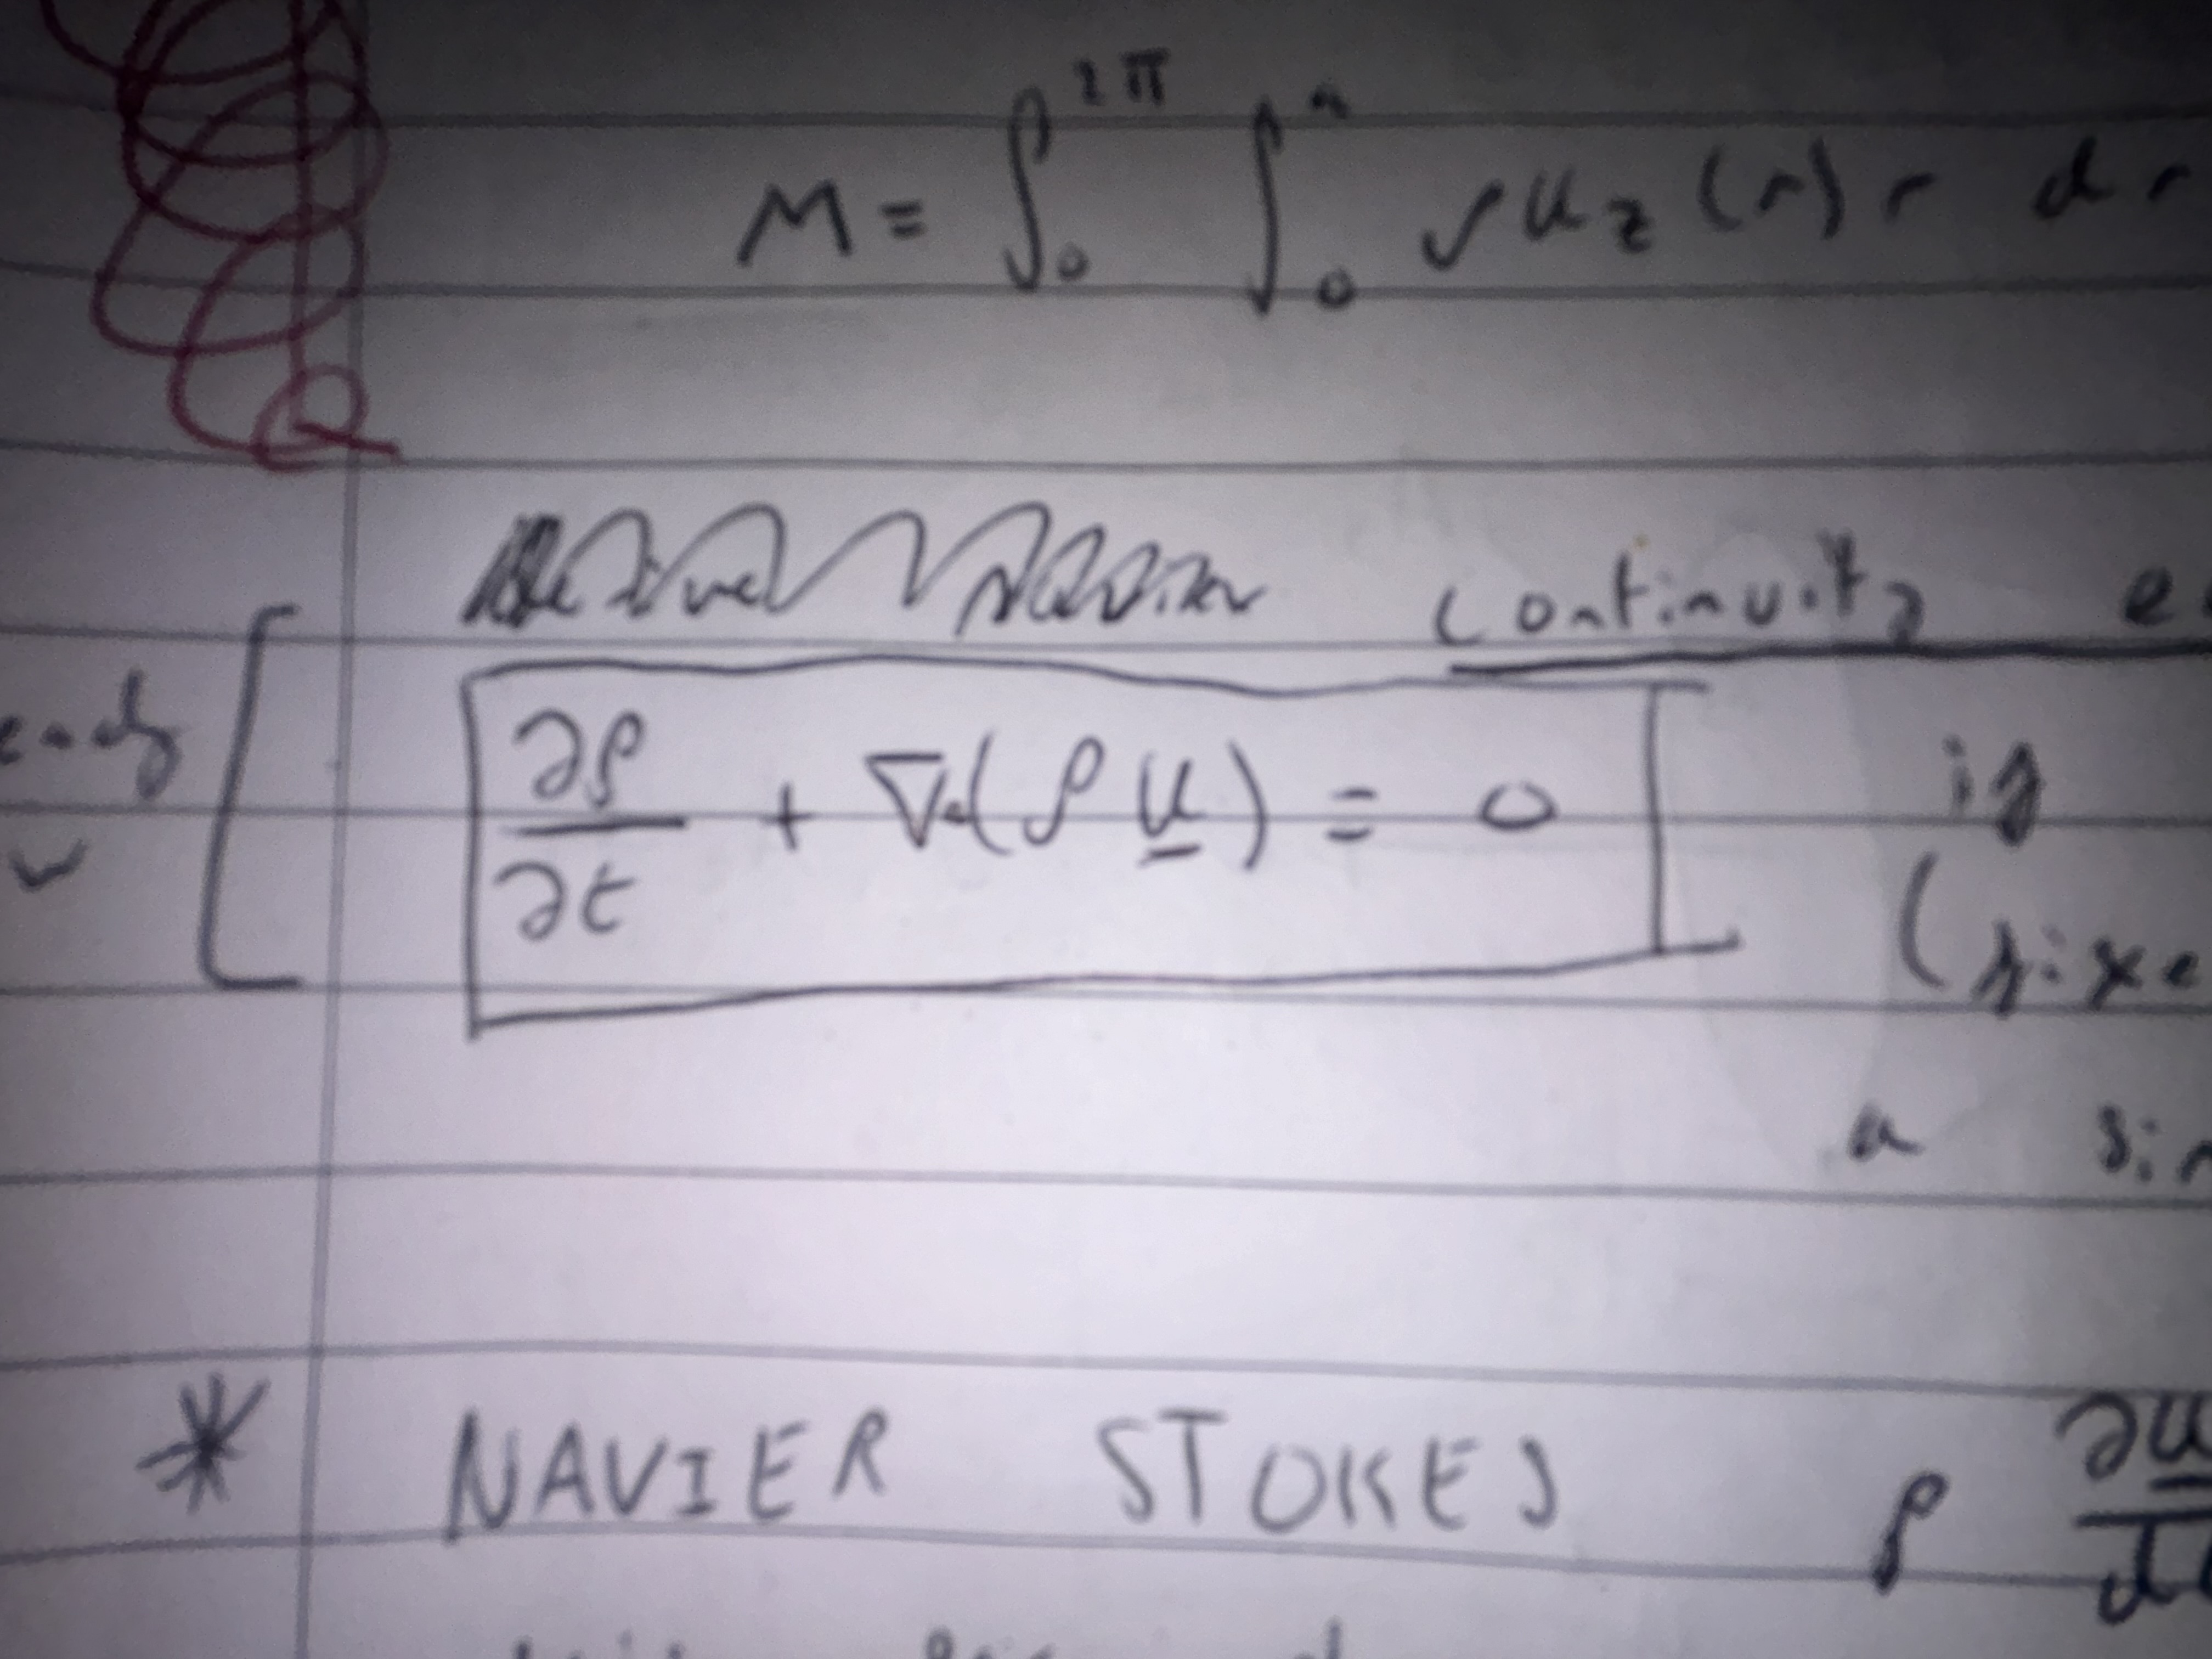 M = ∫₀^{2π} ∫₀^a ρ u_z (r) r dr
continuity
∂ρ/∂t + ∇·(ρ u̲) = 0 if
(fixe
a
* NAVIER STOKES ρ ∂u̲